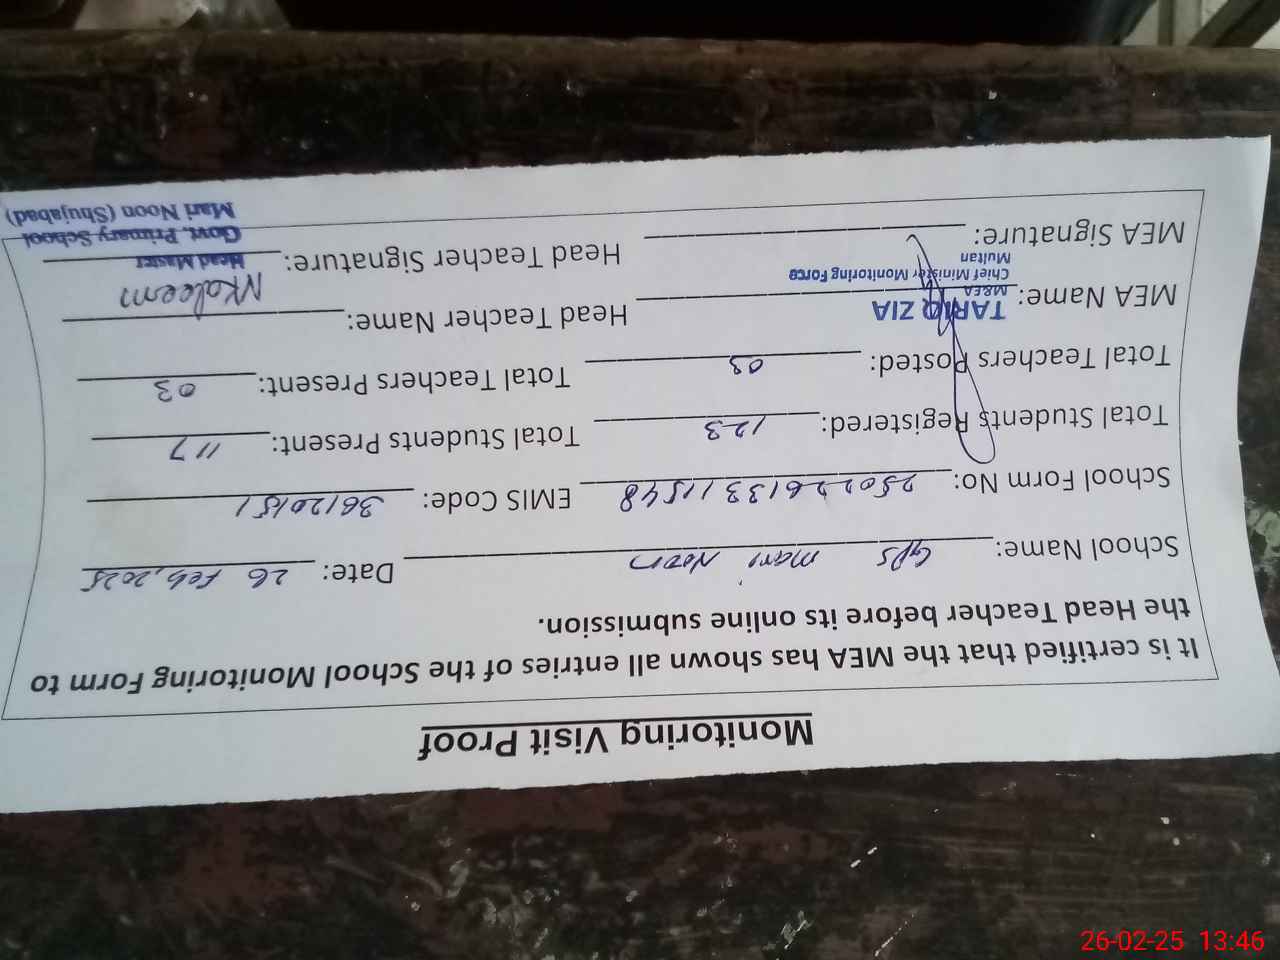 Monitoring Visit Proof
It is certified that the MEA has shown all entries of the School Monitoring Form to
the Head Teacher before its online submission.
School Name: GPS Mari Noon Date: 26 Feb, 2025
School Form No: 250226133111548 EMIS Code: 36120151
Total Students Registered: 123 Total Students Present: 117
Total Teachers Posted: 03 Total Teachers Present: 03
MEA Name: TARIQ ZIA Head Teacher Name: MKaleem
M&EA
Chief Minister Monitoring Force
Multan
MEA Signature: Head Teacher Signature: Head Master
Govt. Primary School
Mari Noon (Shujabad)
26-02-25 13:46